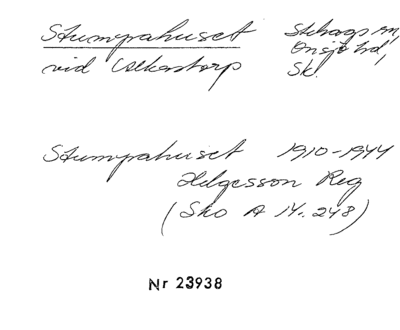 Stumpahuset Stehags sn,
vid Askastorp Onsjö hd,
Sk.
Stumpahuset 1910-1944
Helgesson Reg
(Sko A 14:248)
Nr 23938